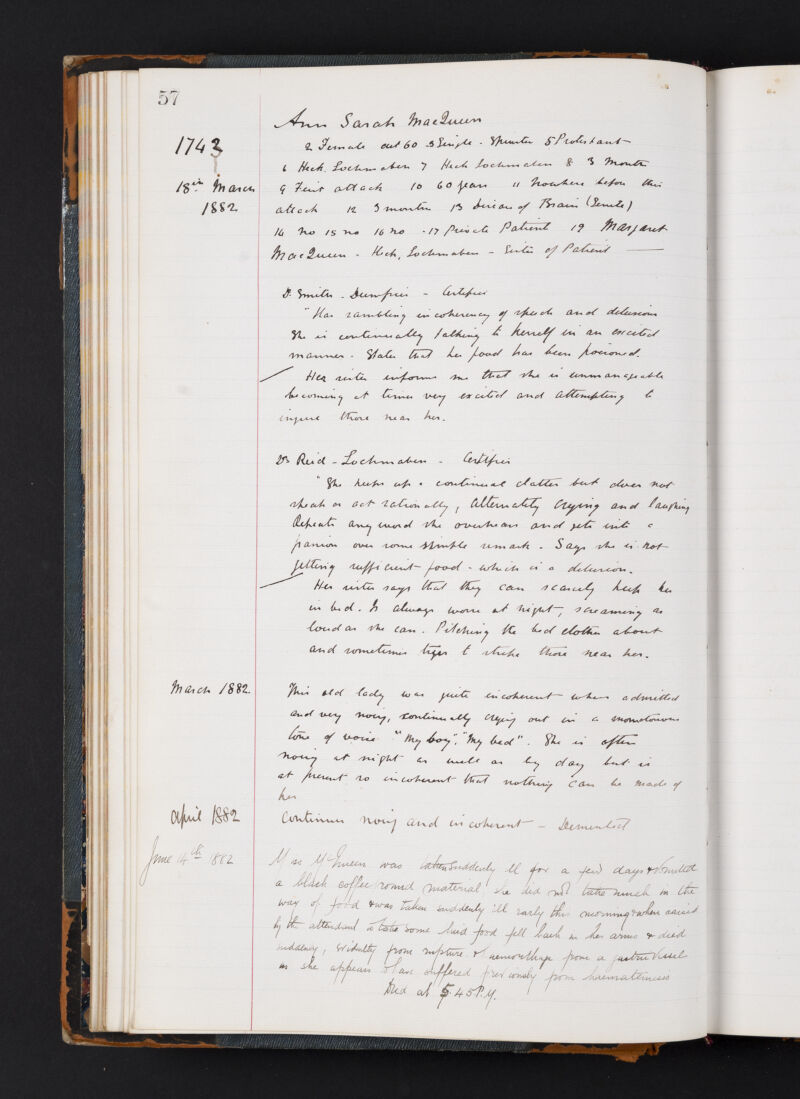 57
Ann Sarah MacQueen
1742
2 Female aet 60 3 Single - Spinster 5 Protestant
6 Heck, Lochmaben 7 Heck Lochmaben 8 3 months
18th March
9 First attack 10 60 years 11 Nowhere before this
1882
attack 12 3 months 13 Disease of Brain (Senile)
14 no 15 no 16 no - 17 Private Patient 19 Margaret
MacQueen - Heck, Lochmaben - Sister of Patient
Dr Smith - Dumfries - Certifies
"Has rambling incoherency of speech and delusions
She is continually talking to herself in an excited
manner - States that her food has been poisoned.
Her sister informs me that she is unmanageable
becoming at times very excited and attempting to
injure those near her.
Dr Reid - Lochmaben - Certifies
"She keeps up a continual clatter but does not
speak or act rationally, alternately crying and laughing
Repeats any word she overhears and gets into a
passion over some simple remark. Says she is not
getting sufficient food - which is a delusion.
Her sister says that they can scarcely keep her
in bed. Is always worse at night, screaming as
loud as she can. Pitching the bed clothes about
and sometimes tryes to strike those near her.
March 1882
This old lady was quite incoherent when admitted
and very noisy, continually crying out in a monotonous
tone of voice "My boy", "My bed". She is often
noisy at night as well as by day but is
at present so incoherent that nothing can be made of
her
April 1882
Continues noisy and incoherent - Demented
June 14th 1882
Miss McQueen was taken suddenly ill for a few days & vomited
a black coffee ground material she did not take much in the
way of food & was taken suddenly ill early this morning & when raised
by the attendant to take some fluid food fell back in her arms & died
suddenly, evidently from rupture & hemorrhage from a gastric vessel
as she appears to have suffered previously from haematemesis
Died at 5.45 P.M.